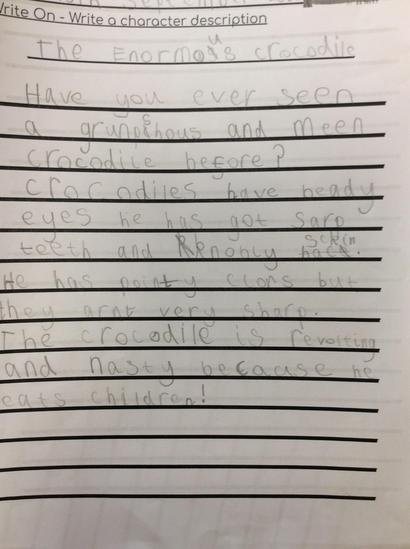 Write On - Write a character description
The Enormous crocodile
Have you ever seen
a grumpshous and meen
crocodile before?
crocodiles have beady
eyes he has got sarp
teeth and sckin
He has pointy clors but
they arnt very sharp.
The crocodile is revolting
and nasty because he
eats children!